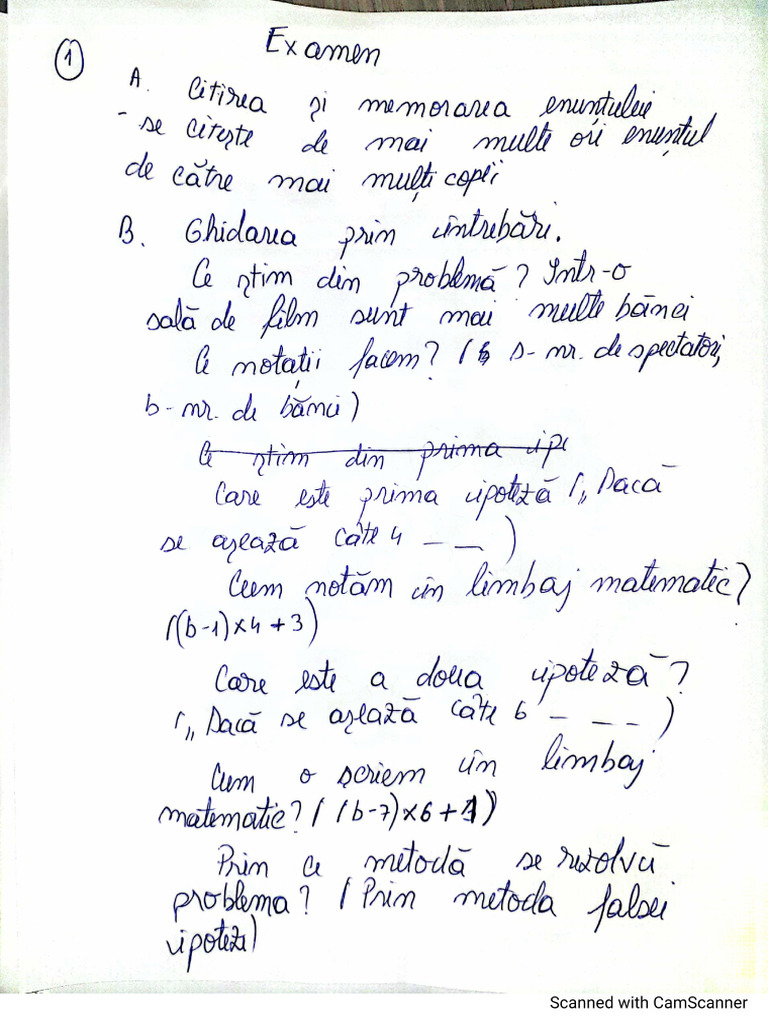 1
Examen
A. Citirea și memorarea enunțului
- se citește de mai multe ori enunțul
de către mai mulți copii
B. Ghidarea prin întrebări.
Ce știm din problemă? Într-o
sală de film sunt mai multe bănci
Ce notații facem? ( s - nr. de spectatori,
b - nr. de bănci)
Ce știm din prima ip
Care este prima ipoteză („ Dacă
se așează câte 4 _ _ )
Cum notăm în limbaj matematic?
((b-1)×4+3)
Care este a doua ipoteză?
(„ Dacă se așează câte 6 _ _ _ )
Cum o scriem în limbaj
matematic? ( (b-7)×6+1)
Prin ce metodă se rezolvă
problema? (Prin metoda falsei
ipoteze)
Scanned with CamScanner